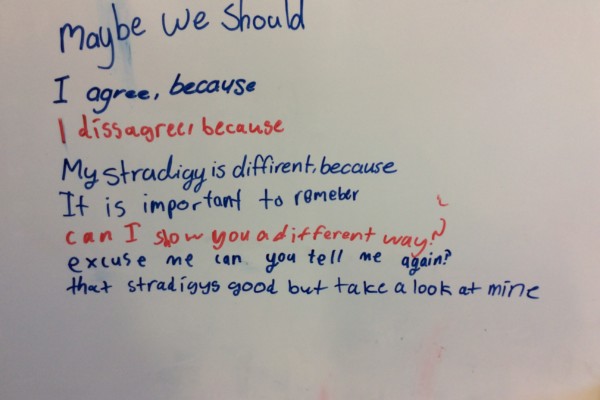 Maybe we should
I agree, because
I dissagree, because
My stradigy is diffirent, because
It is important to romeber
can I show you a different way?
excuse me can you tell me again?
that stradigys good but take a look at mine